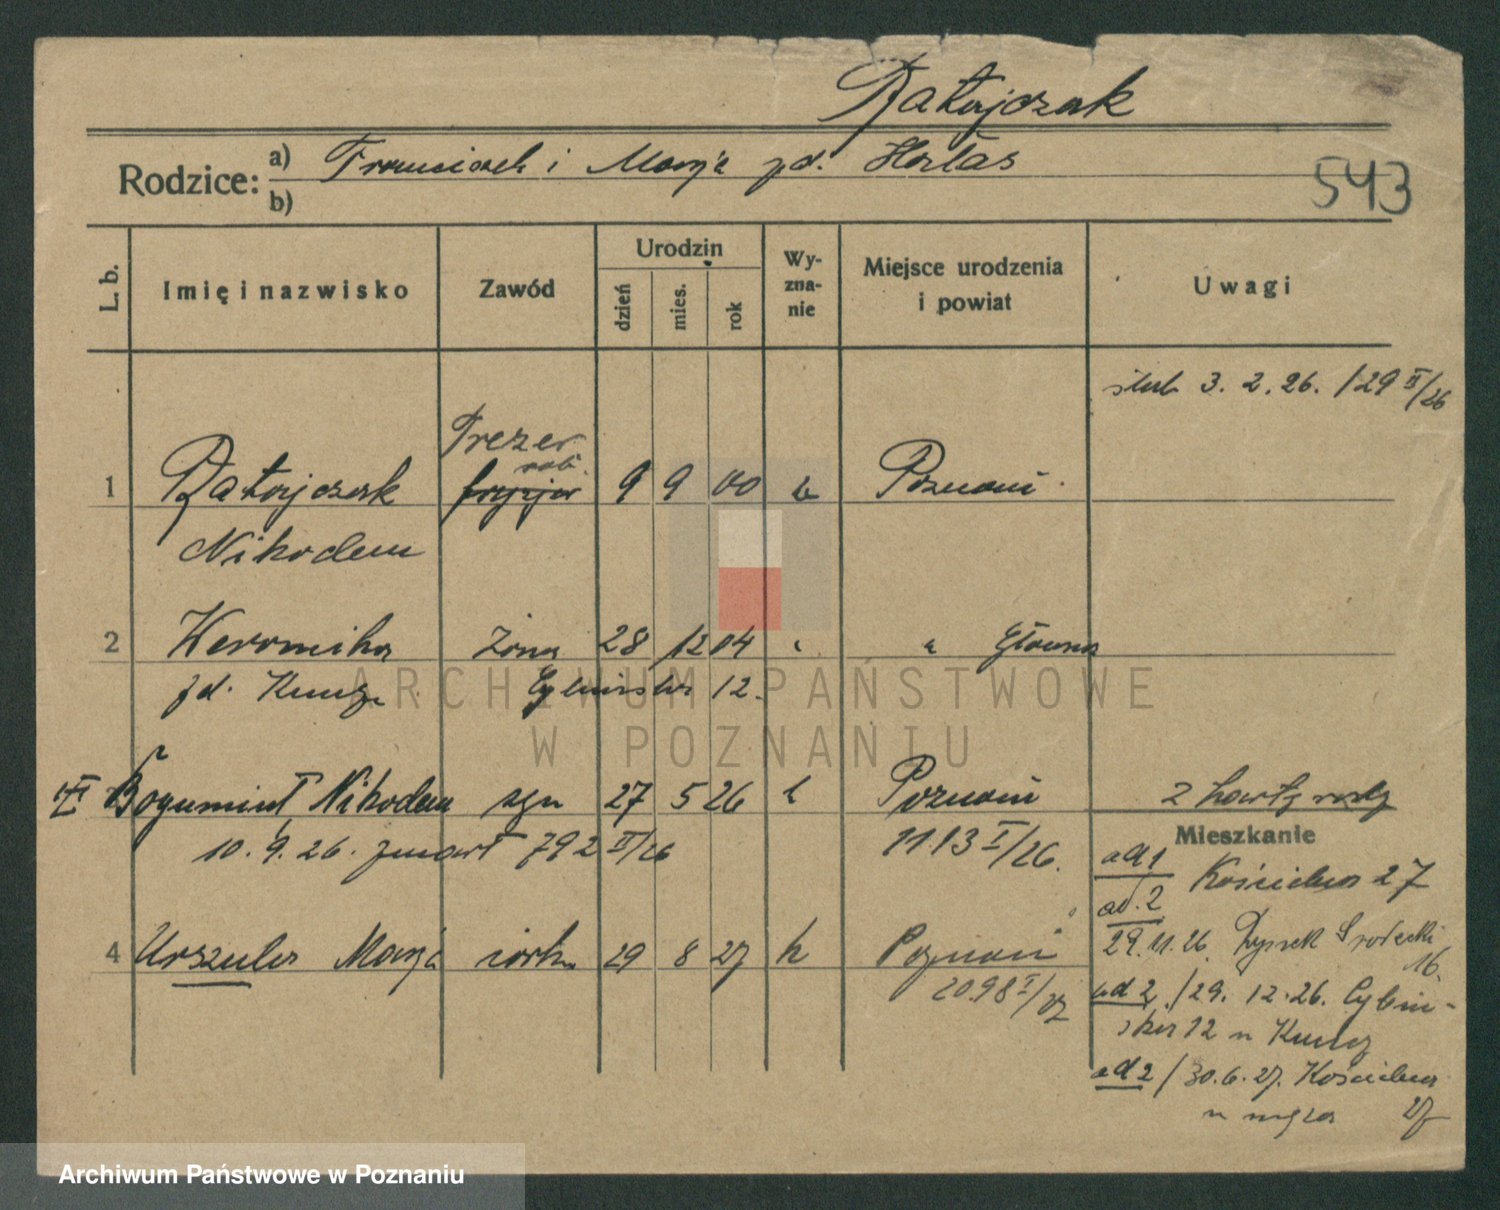 Ratajczak
Rodzice: a) Franciszek i Marja zd. Hałas
b)
543
L. b.
Imię i nazwisko
Zawód
Urodzin
dzień
mies.
rok
Wy-
zna-
nie
Miejsce urodzenia
i powiat
Uwagi
ślub 3. 2. 26. /29 II/26
Frezer
rob.
1 Ratajczak fryzjer 9 9 00 k Poznań
Nikodem
2 Weronika żona 28 12 04 " " Główna
zd. Kunze Cybińska 12.
Bogumint Nikodem syn 27 5 26 k Poznań 2 karty
10. 9. 26. zmarł 792 II/26 1113 I/26.
Mieszkanie
ad 1 Kościelna 27
ad. 2
29. 11. 26. Rynek Środecki
16.
4 Urszula Marja córka 29 8 27 k Poznań
2098 I/27
ad 2 /29. 12. 26. Cybiń-
ska 12 u Kunze
ad 2 / 30. 6. 27. Kościelna
27
u męża
ARCHIWUM PAŃSTWOWE
W POZNANIU
Archiwum Państwowe w Poznaniu